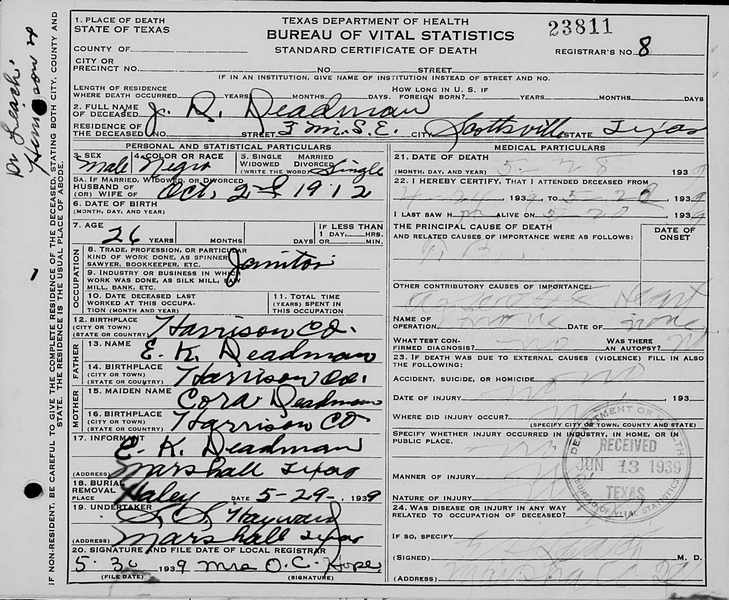 1. PLACE OF DEATH
STATE OF TEXAS
COUNTY OF
CITY OR
PRECINCT NO. NO. STREET
TEXAS DEPARTMENT OF HEALTH
BUREAU OF VITAL STATISTICS
STANDARD CERTIFICATE OF DEATH
23811
REGISTRAR'S NO. 8
IF IN AN INSTITUTION, GIVE NAME OF INSTITUTION INSTEAD OF STREET AND NO.
LENGTH OF RESIDENCE
WHERE DEATH OCCURRED YEARS MONTHS DAYS
HOW LONG IN U. S. IF
FOREIGN BORN? YEARS MONTHS DAYS
2. FULL NAME
OF DECEASED J. D. Deadman
RESIDENCE OF
THE DECEASED NO. STREET 3 M. S. E. CITY Scottsville STATE Texas
PERSONAL AND STATISTICAL PARTICULARS
3. SEX Male 4. COLOR OR RACE Negro 5. SINGLE MARRIED WIDOWED DIVORCED (WRITE THE WORD) Single
5A. IF MARRIED, WIDOWED, OR DIVORCED
HUSBAND OF
(OR) WIFE OF
Oct, 2nd 1912
6. DATE OF BIRTH
(MONTH, DAY, AND YEAR)
7. AGE 26 YEARS MONTHS DAYS IF LESS THAN 1 DAY, HRS. OR MIN.
OCCUPATION
8. TRADE, PROFESSION, OR PARTICULAR
KIND OF WORK DONE, AS SPINNER,
SAWYER, BOOKKEEPER, ETC. Janitor
9. INDUSTRY OR BUSINESS IN WHICH
WORK WAS DONE, AS SILK MILL, SAW
MILL, BANK, ETC.
10. DATE DECEASED LAST
WORKED AT THIS OCCUPA-
TION (MONTH AND YEAR)
11. TOTAL TIME
(YEARS) SPENT IN
THIS OCCUPATION
12. BIRTHPLACE
(CITY OR TOWN)
(STATE OR COUNTRY) Harrison Co.
FATHER
13. NAME E. K. Deadman
14. BIRTHPLACE
(CITY OR TOWN)
(STATE OR COUNTRY) Harrison Co.
MOTHER
15. MAIDEN NAME Cora Deadman
16. BIRTHPLACE
(CITY OR TOWN)
(STATE OR COUNTRY) Harrison Co
17. INFORMANT E. K. Deadman
(ADDRESS) Marshall Texas
18. BURIAL
REMOVAL
PLACE Haley DATE 5-29-1939
19. UNDERTAKER S. S. Hayward
(ADDRESS) Marshall Texas
20. SIGNATURE AND FILE DATE OF LOCAL REGISTRAR
5-30 1939 Mrs O. C. Hope
(FILE DATE) (SIGNATURE)
MEDICAL PARTICULARS
21. DATE OF DEATH
(MONTH, DAY, AND YEAR) 5-28 1939
22. I HEREBY CERTIFY, THAT I ATTENDED DECEASED FROM
4-24 1939 TO 5-28 1939
I LAST SAW H ALIVE ON 5-28 1939
THE PRINCIPAL CAUSE OF DEATH
AND RELATED CAUSES OF IMPORTANCE WERE AS FOLLOWS:
DATE OF
ONSET
OTHER CONTRIBUTORY CAUSES OF IMPORTANCE:
Heart
NAME OF
OPERATION none
WHAT TEST CON-
FIRMED DIAGNOSIS? no WAS THERE
AN AUTOPSY? no
23. IF DEATH WAS DUE TO EXTERNAL CAUSES (VIOLENCE) FILL IN ALSO
THE FOLLOWING:
ACCIDENT, SUICIDE, OR HOMICIDE
DATE OF INJURY 193
WHERE DID INJURY OCCUR?
(SPECIFY CITY OR TOWN, COUNTY AND STATE)
SPECIFY WHETHER INJURY OCCURRED IN INDUSTRY, IN HOME, OR IN
PUBLIC PLACE.
MANNER OF INJURY
NATURE OF INJURY
24. WAS DISEASE OR INJURY IN ANY WAY
RELATED TO OCCUPATION OF DECEASED?
IF SO, SPECIFY
(SIGNED) M. D.
(ADDRESS)
DEPARTMENT OF HEALTH
RECEIVED
JUN 13 1939
TEXAS
BUREAU OF VITAL STATISTICS
IF NON-RESIDENT, BE CAREFUL TO GIVE THE COMPLETE RESIDENCE OF THE DECEASED, STATING BOTH CITY, COUNTY AND
STATE. THE RESIDENCE IS THE USUAL PLACE OF ABODE.